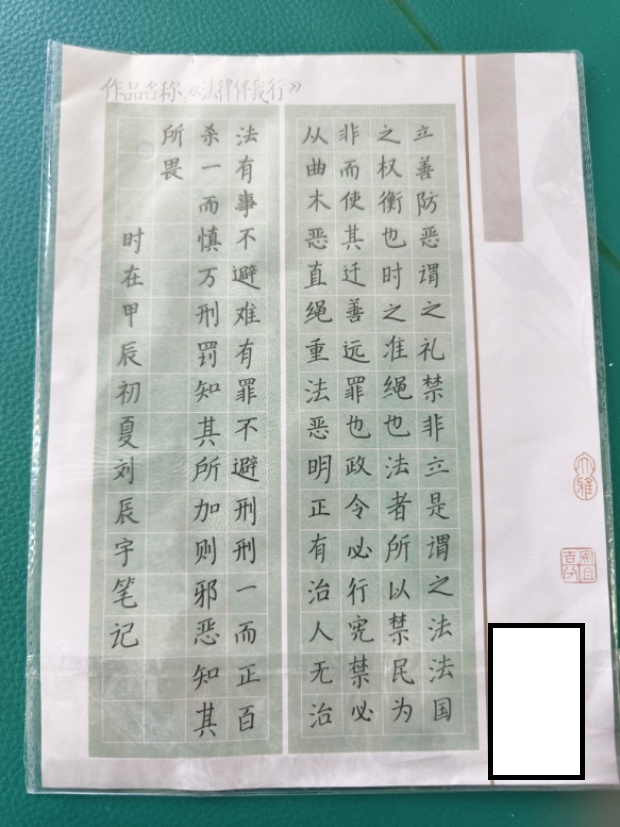 作品名称:《法律伴我行》
立善防恶谓之礼禁非立是谓之法法国
之权衡也时之准绳也法者所以禁民为
非而使其迁善远罪也政令必行宪禁必
从曲木恶直绳重法恶明正有治人无治
法有事不避难有罪不避刑刑一而正百
杀一而慎万刑罚知其所加则邪恶知其
所畏
时在甲辰初夏刘辰宇笔记
大雅